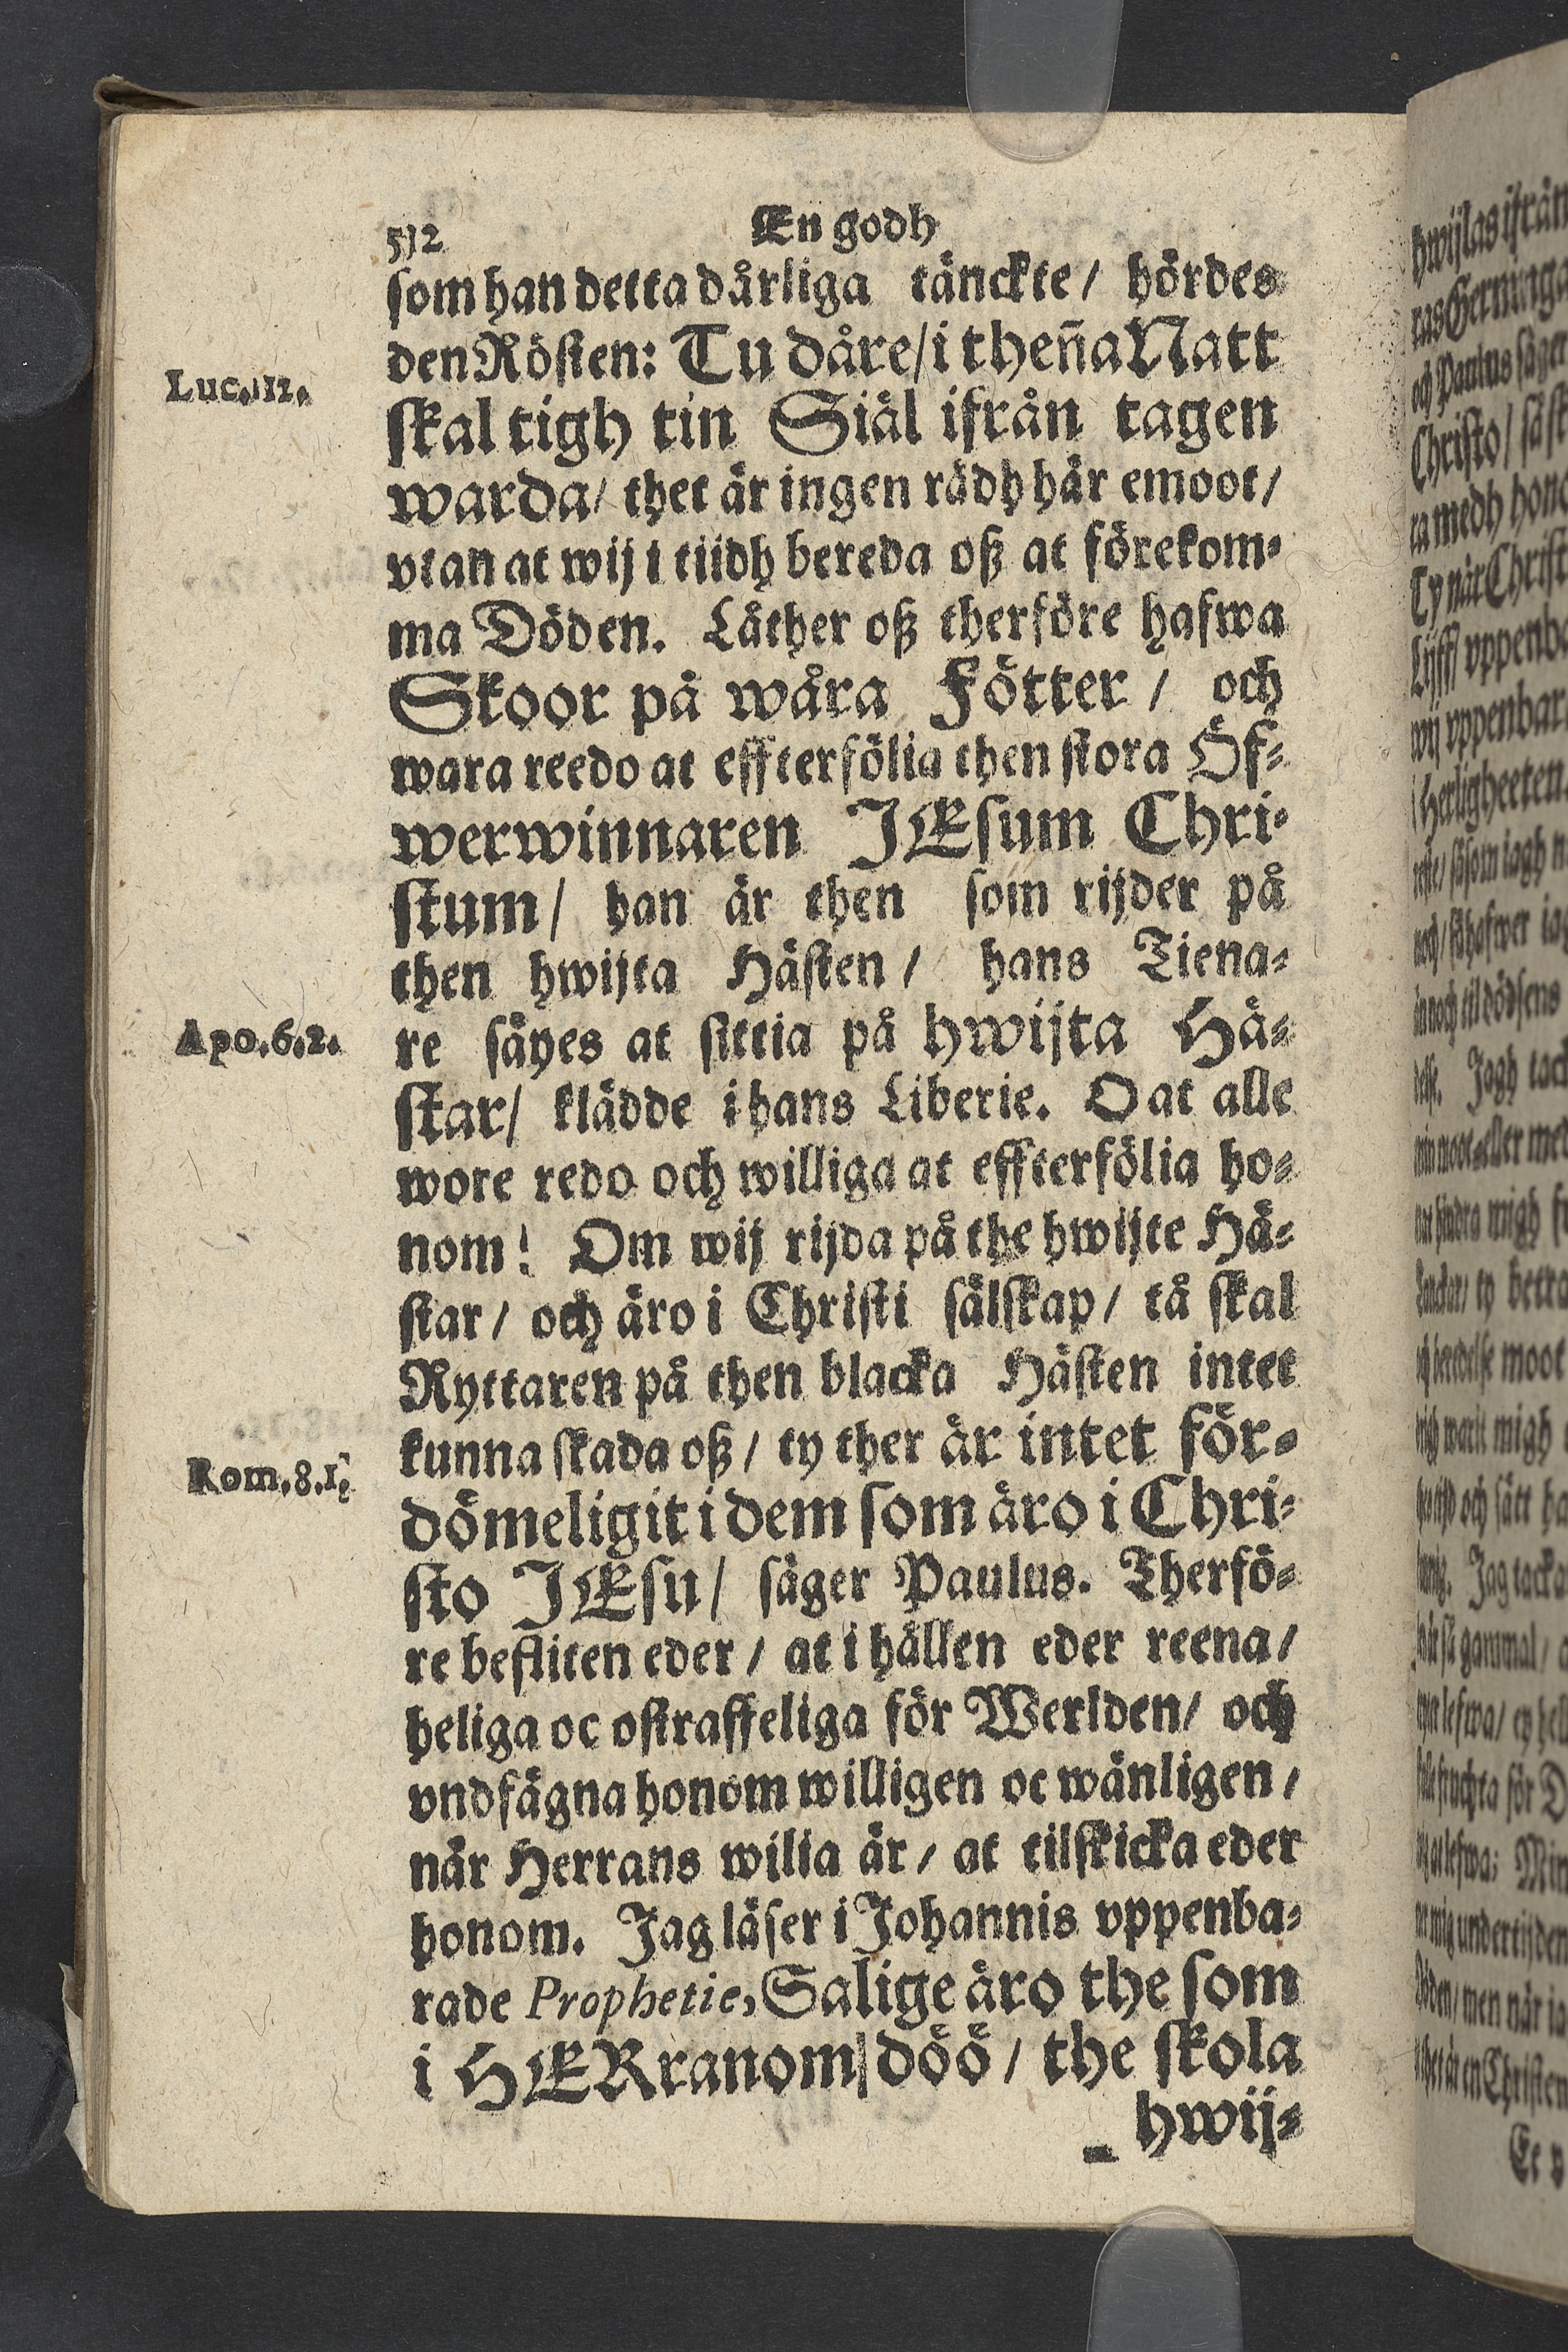 512 En godh
som han detta dårliga tänckte / hördes
den Rösten: Tu dåre / i theña Natt
Luc. 12.
skal tigh tin Siäl ifrån tagen
warda / thet är ingen rådh här emoot /
vtan at wij i tiidh bereda oß at förekom-
ma Döden. Låther oß therföre hafwa
Skoor på wåra Fötter / och
wara reedo at effterfölia then stora Öf-
werwinnaren JEsum Chri-
stum / han är then som rijder på
then hwijta Hästen / hans Tiena-
Apo. 6. 2.
re säyes at sittia på hwijta Hä-
star / klädde i hans Liberie. O at alle
wore redo och williga at effterfölia ho-
nom! Om wij rijda på the hwijte Hä-
star / och äro i Christi sälskap / tå skal
Ryttaren på then blacka Hästen intet
kunna skada oß / ty ther är intet för-
Rom. 8. 1.
dömeligit i dem som äro i Chri-
sto JEsu / säger Paulus. Therfö-
re befliten eder / at i hållen eder reena /
heliga oc ostraffeliga för Werlden / och
vndfägna honom willigen oc wänligen /
når Herrans wilia är / at tilskicka eder
honom. Jag läser i Johannis vppenba-
rade Prophetie, Salige äro the som
i HERranom döö / the skola
hwij-